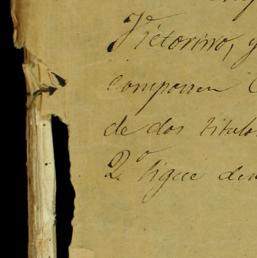 Victorino, y
componen
de dos titulo
2º sigue